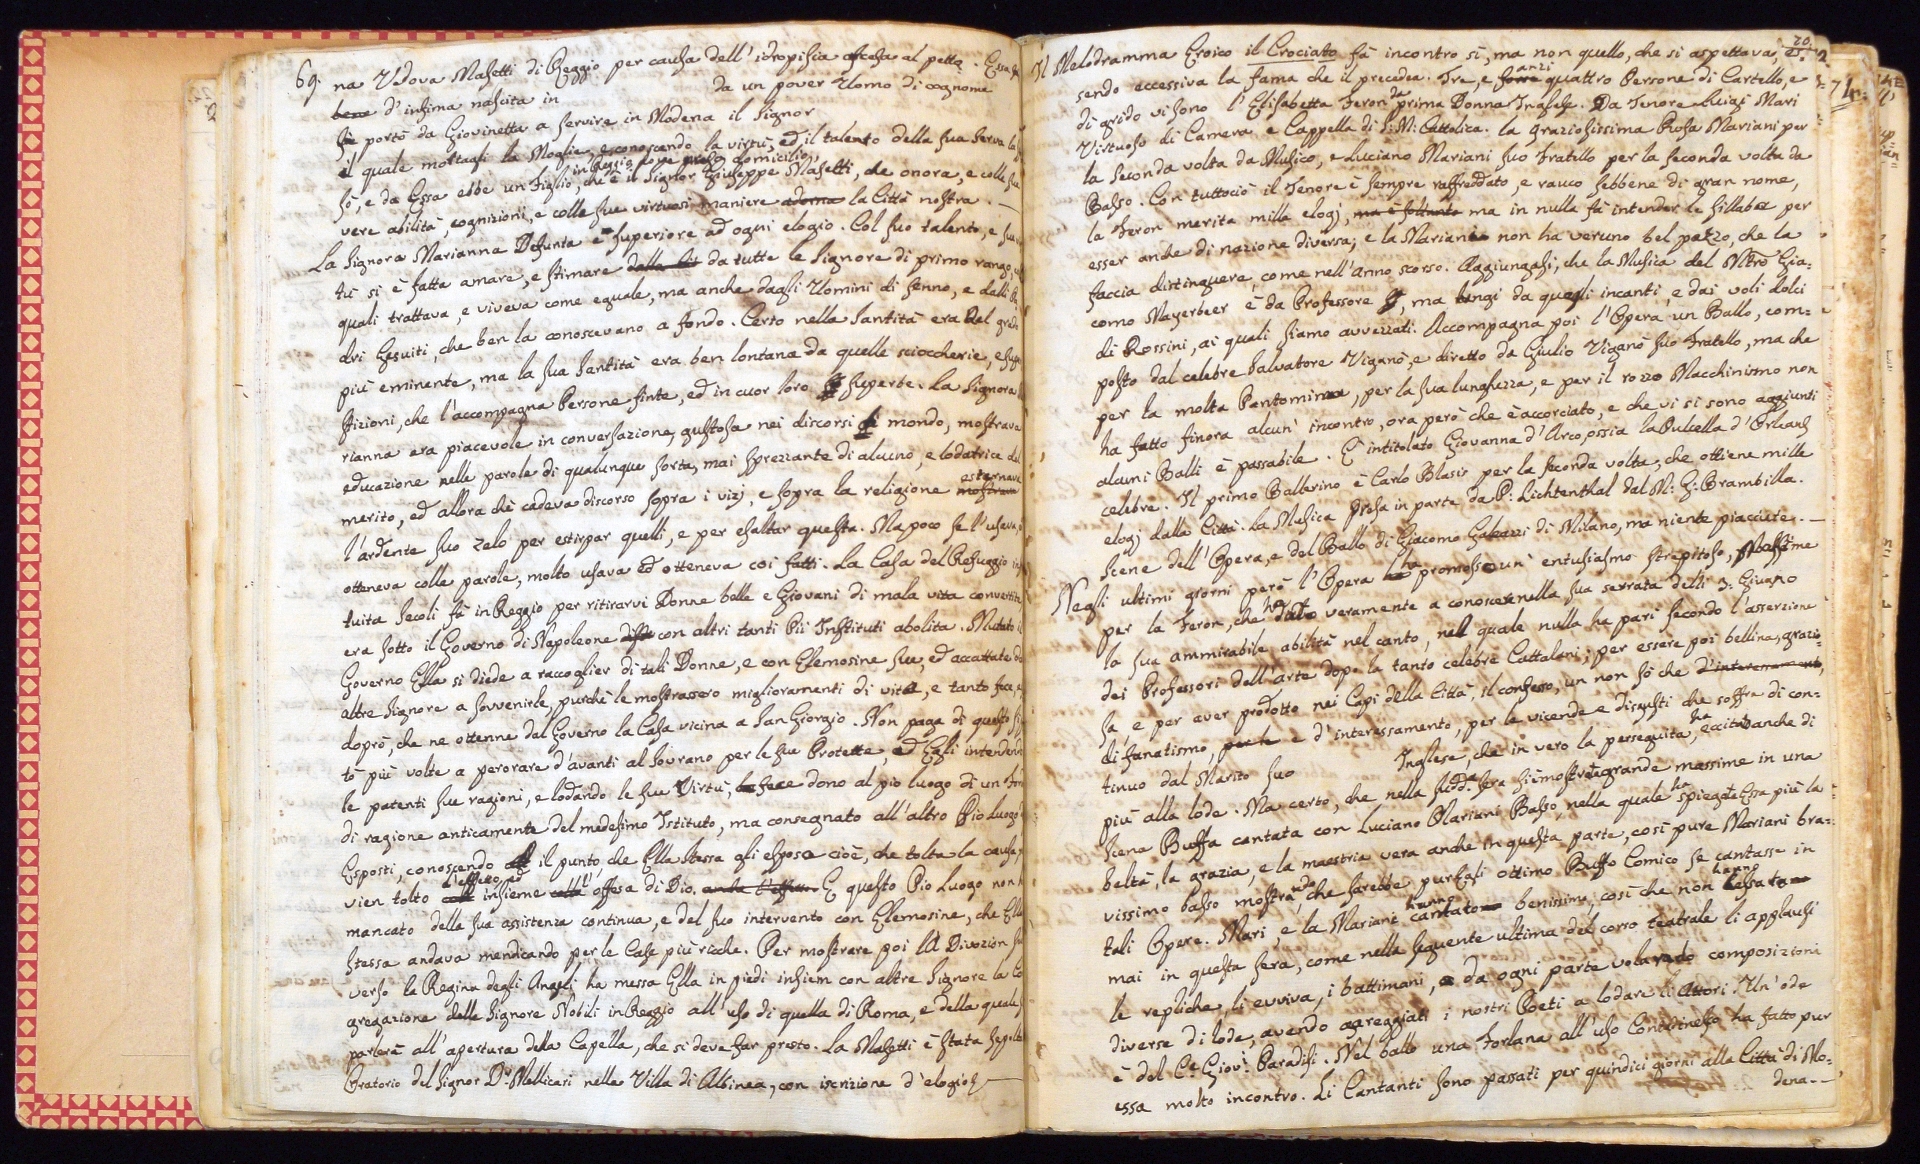 69.
na Vedova Masetti di Reggio per causa dell' idropisia ascesa al petto. Essa
bene d' infima nascita in da un pover Uomo di cognome
si portò da Giovinetta a servire in Modena il Signor
il quale mortagli la Moglie, e conoscendo la virtù, ed il talento della sua Serva la
in Reggio, dove prese domicilio,
sò, e da Essa ebbe un Figlio, che è il Signor Giuseppe Masetti, che onora, e colle sue
vere abilità, cognizioni, e colle sue virtuosi maniere adorna la Città nostra. —
La Signora Marianna Defunta è superiore ad ogni elogio. Col suo talento, e sua
tù si è fatta amare, e stimare dalla Cit da tutte le Signore di primo rango,
quali trattava, e viveva come eguale, ma anche dagli Uomini di senno, e dalli Pa
dri Gesuiti, che ben la conoscevano a fondo. Certo nella Santità era del grado
più eminente, ma la sua Santità era ben lontana da quelle scioccherie, e sup
stizioni, che l'accompagna Persone finte, ed in cuor loro superbe. La Signora
rianna era piacevole in conversazione, gustosa nei discorsi di mondo, mostrava
educazione nelle parole di qualunque sorta, mai sprezzante di alcuno, e lodatrice del
esternava
merito, ed allora chè cadeva discorso sopra i vizj, e sopra la religione mostrava
l'ardente suo zelo per estirpar quelli, e per esaltar questa. Ma poco se l'usava,
otteneva colle parole, molto usava ed otteneva coi fatti. La Casa del Refuggio
tuita Secoli fà in Reggio per ritirarvi Donne belle e Giovani di mala vita convertite
era sotto il Governo di Napoleone con altri tanti Pii Instituti abolita. Mutato il
Governo Ella si diede a raccoglier di tali Donne, e con Elemosine sue, ed accattate da
altre Signore a sovvenirle, purchè le mostrassero miglioramenti di vita, e tanto fece,
doprò, che ne ottenne dal Governo la Casa vicina a San Giorgio. Non paga di questo
tò più volte a perorare d'avanti al Sovrano per le sue Protette, ed Egli intendendo
le patenti sue ragioni, e lodando le sue Virtù, fece dono al pio Luogo di un
di ragione anticamente del medesimo Istituto, ma consegnato all'altro Pio Luogo
Esposti, conoscendo il punto, che Ella stessa gli espose cioè, che tolta la causa,
l'effetto, ed
vien tolto insieme l' offesa di Dio. anche l'effetto. E questo Pio Luogo non
mancato della sua assistenza continua, e del suo intervento con Elemosine, che Ella
stessa andava mendicando per le Case più ricche. Per mostrare poi la Divozion sua
verso la Regina degli Angeli ha messa Ella in piedi insiem con altre Signore la Co
gregazione delle Signore Nobili in Reggio all'uso di quella di Roma, e della quale
parlerà all'apertura della Capella, che si deve far presto. La Masetti è stata sepolta
Oratorio del Signor Dr Mellicari nella Villa di Albinea, con iscrizione d'elogio. —
70.
71.
Il Melodramma Eroico il Crociato fà incontro sì, ma non quello, che si aspettava, es-
sendo eccessiva la fama che il precedea. Tre, e forse anzi quattro Persone di Cartello, e
di grido vi sono l'Elisabetta Feron da prima Donna Inglese. Da Tenore Luigi Mari
Virtuoso di Camera e Cappella di S: M: Cattolica. La graziosissima Rosa Mariani per
la seconda volta da Musico, e Luciano Mariani suo Fratello per la seconda volta da
Basso. Con tuttociò il Tenore è sempre raffreddato, e rauco sebbene di gran nome,
la Feron merita mille elogj, ma è soltanto ma in nulla fà intender le sillabe per
esser anche di nazione diversa, e la Mariani non ha veruno bel pezzo, che la
faccia distinguere, come nell'anno scorso. Aggiungasi, che la Musica del Mtro Gia-
como Mayerbeer è da Professore sì, ma lungi da quegli incanti e dai voli dolci
di Rossini, ai quali siamo avvezzati. Accompagna poi l'Opera un Ballo, com-
posto dal celebre Salvatore Viganò, e diretto da Giulio Viganò suo Fratello, ma che
per la molta Pantomima, per la sua lunghezza, e per il rozzo Macchinismo non
ha fatto finora alcun' incontro, ora però che è accorciato, e che vi si sono aggiunti
alcuni Balli è passabile. È intitolato Giovanna d'Arco, ossia la Pulcella d'Orleans
celebre. Il primo Ballerino è Carlo Blasis per la seconda volta, che ottiene mille
elogj dalla Città. La Musica presa in parte da P: Lichtenthal dal M: G: Brambilla.
Scene dell'Opera, e del Ballo di Giacomo Galeazzi di Milano, ma niente piaciute. —
Negli ultimi giorni però l'Opera ha promosso un' entusiasmo strepitoso, Massime
per la Feron, che ha dato veramente a conoscere nella sua serrata delli 3: Giugno
la sua ammirabile abilità nel canto, nel quale nulla ha pari secondo l'asserzione
dei Professori dell'arte dopo la tanto celebre Cattalani; per essere poi bellina, grazio-
sa, e per aver prodotto nei Capi della Città, il confesso, un non sò che d'interessamento,
di fanatismo, perchè e d'interessamento, per le vicende e disgusti che soffre di con-
tinuo dal Marito suo Inglese, che in vero la perseguita, ha eccitato anche di
più alla lode. Ma certo, che nella sudda. sera si è mostrata grande massime in una
Scena Buffa cantata con Luciano Mariani Basso, nella quale ha spiegate Essa più la
beltà, la grazia, e la maestria vera anche in questa parte, così pure Mariani bra-
vissimo basso mostrando, che sarebbe pur Egli ottimo Buffo Comico se cantasse in
tali Opere. Mari, e la Mariani hanno cantato benissimo, così che non hanno cessato
mai in questa sera, come nella seguente ultima del corso teatrale li applausi
le repliche, li evviva, i battimani, e da ogni parte volarono composizioni
diverse di lode, avendo agreggiati i nostri Poeti a lodare li Attori. Un' ode
è del Ce Giovi Paradisi. Nel ballo una Forlana all'uso Contadinesco ha fatto pur
essa molto incontro. Li Cantanti sono passati per quindici giorni alla Città di Mo-
dena. —